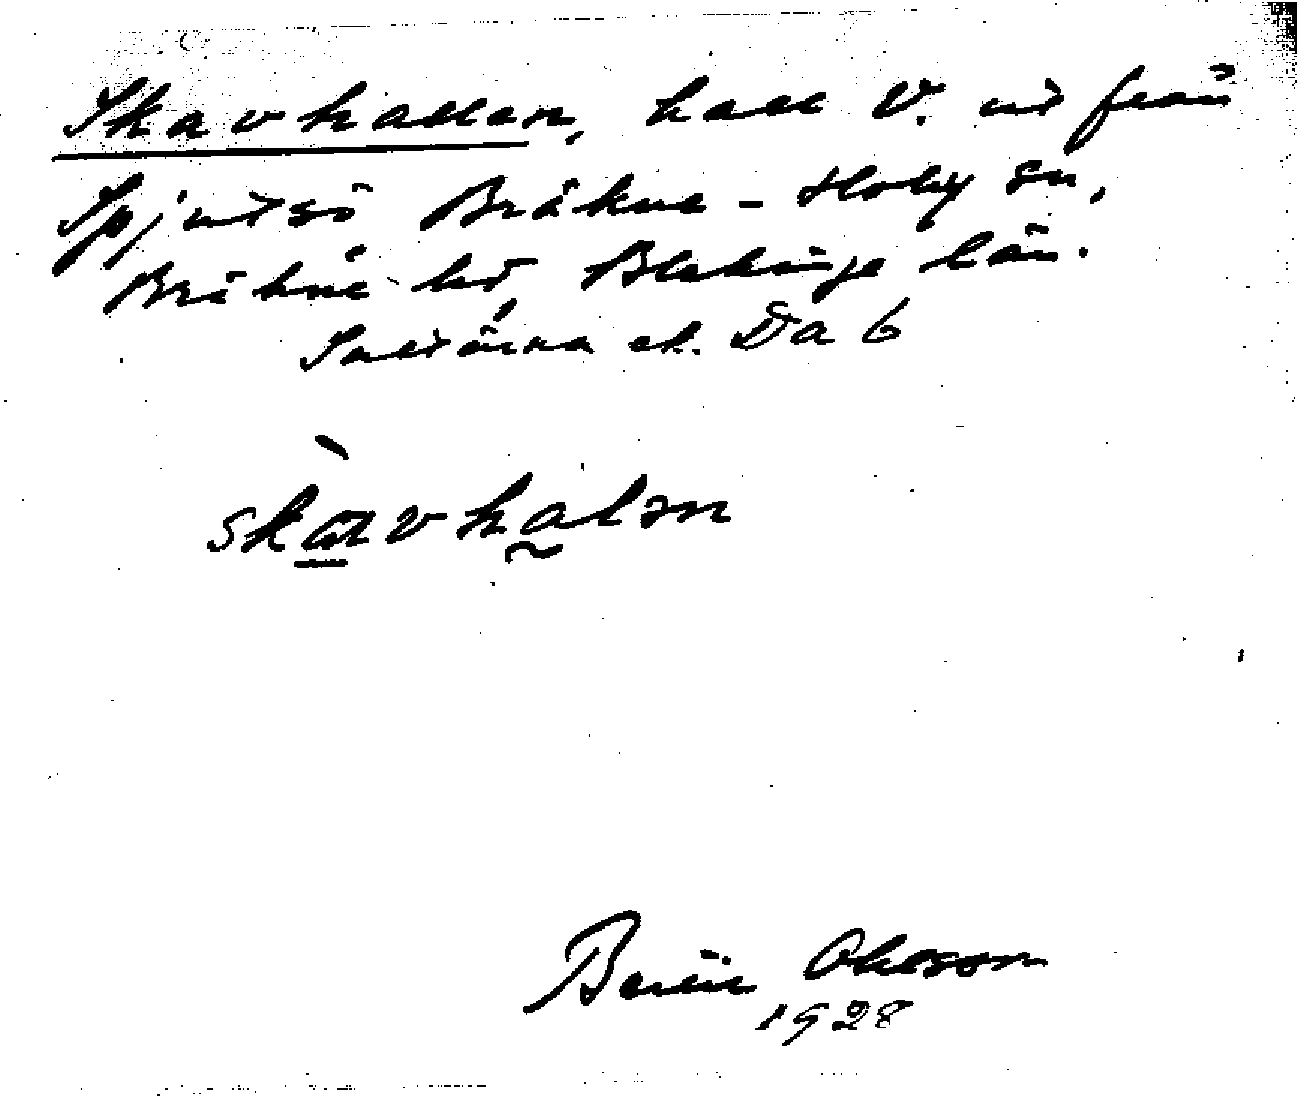 Skavhallen, hall V. ut från
Spjutsö Bräkne-Hoby sn,
Bräkne hd, Blekinge län.
Saltärna ek. Da 6
skavhalən
Ohlson
1928